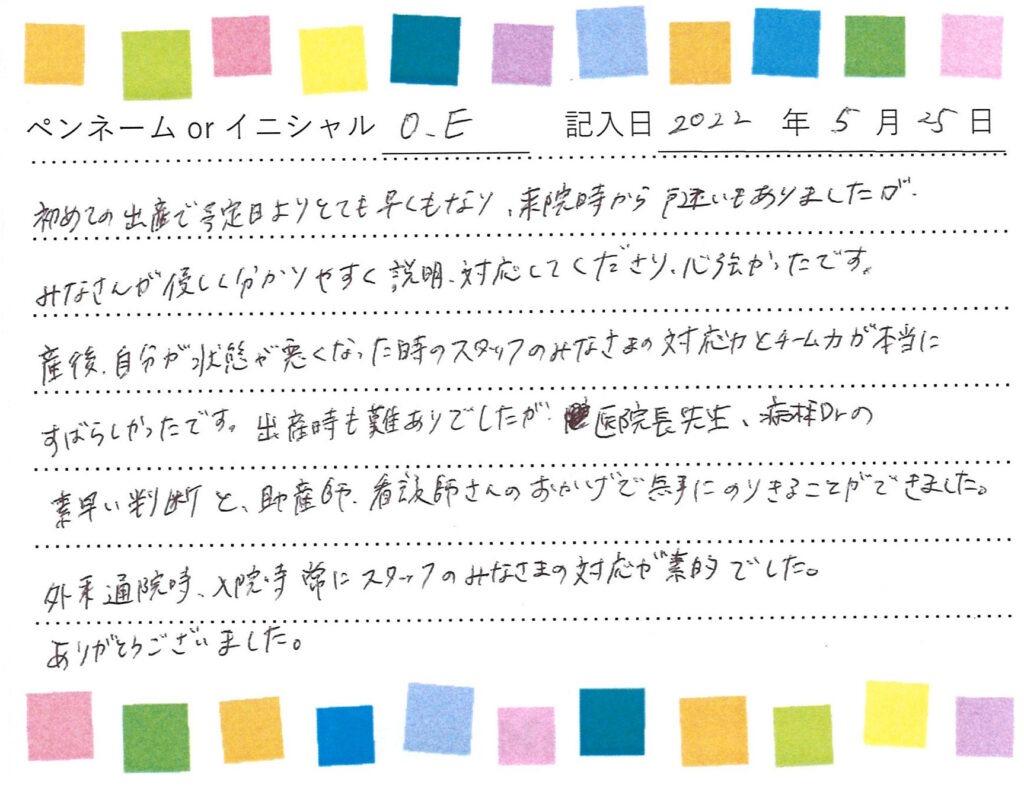 ペンネーム or イニシャル O.E 記入日 2022 年 5 月 25 日
初めての出産で予定日よりとても早くもなり、来院時から戸迷いもありましたが、
みなさんが優しく分かりやすく説明、対応してくださり、心強かったです。
産後、自分が状態が悪くなった時のスタッフのみなさまの対応力とチーム力が本当に
すばらしかったです。出産時も難ありでしたが、医院長先生、病棟Drの
素早い判断と、助産師、看護師さんのおかげで無事にのりきることができました。
外来通院時、入院時常にスタッフのみなさまの対応が素的でした。
ありがとうございました。